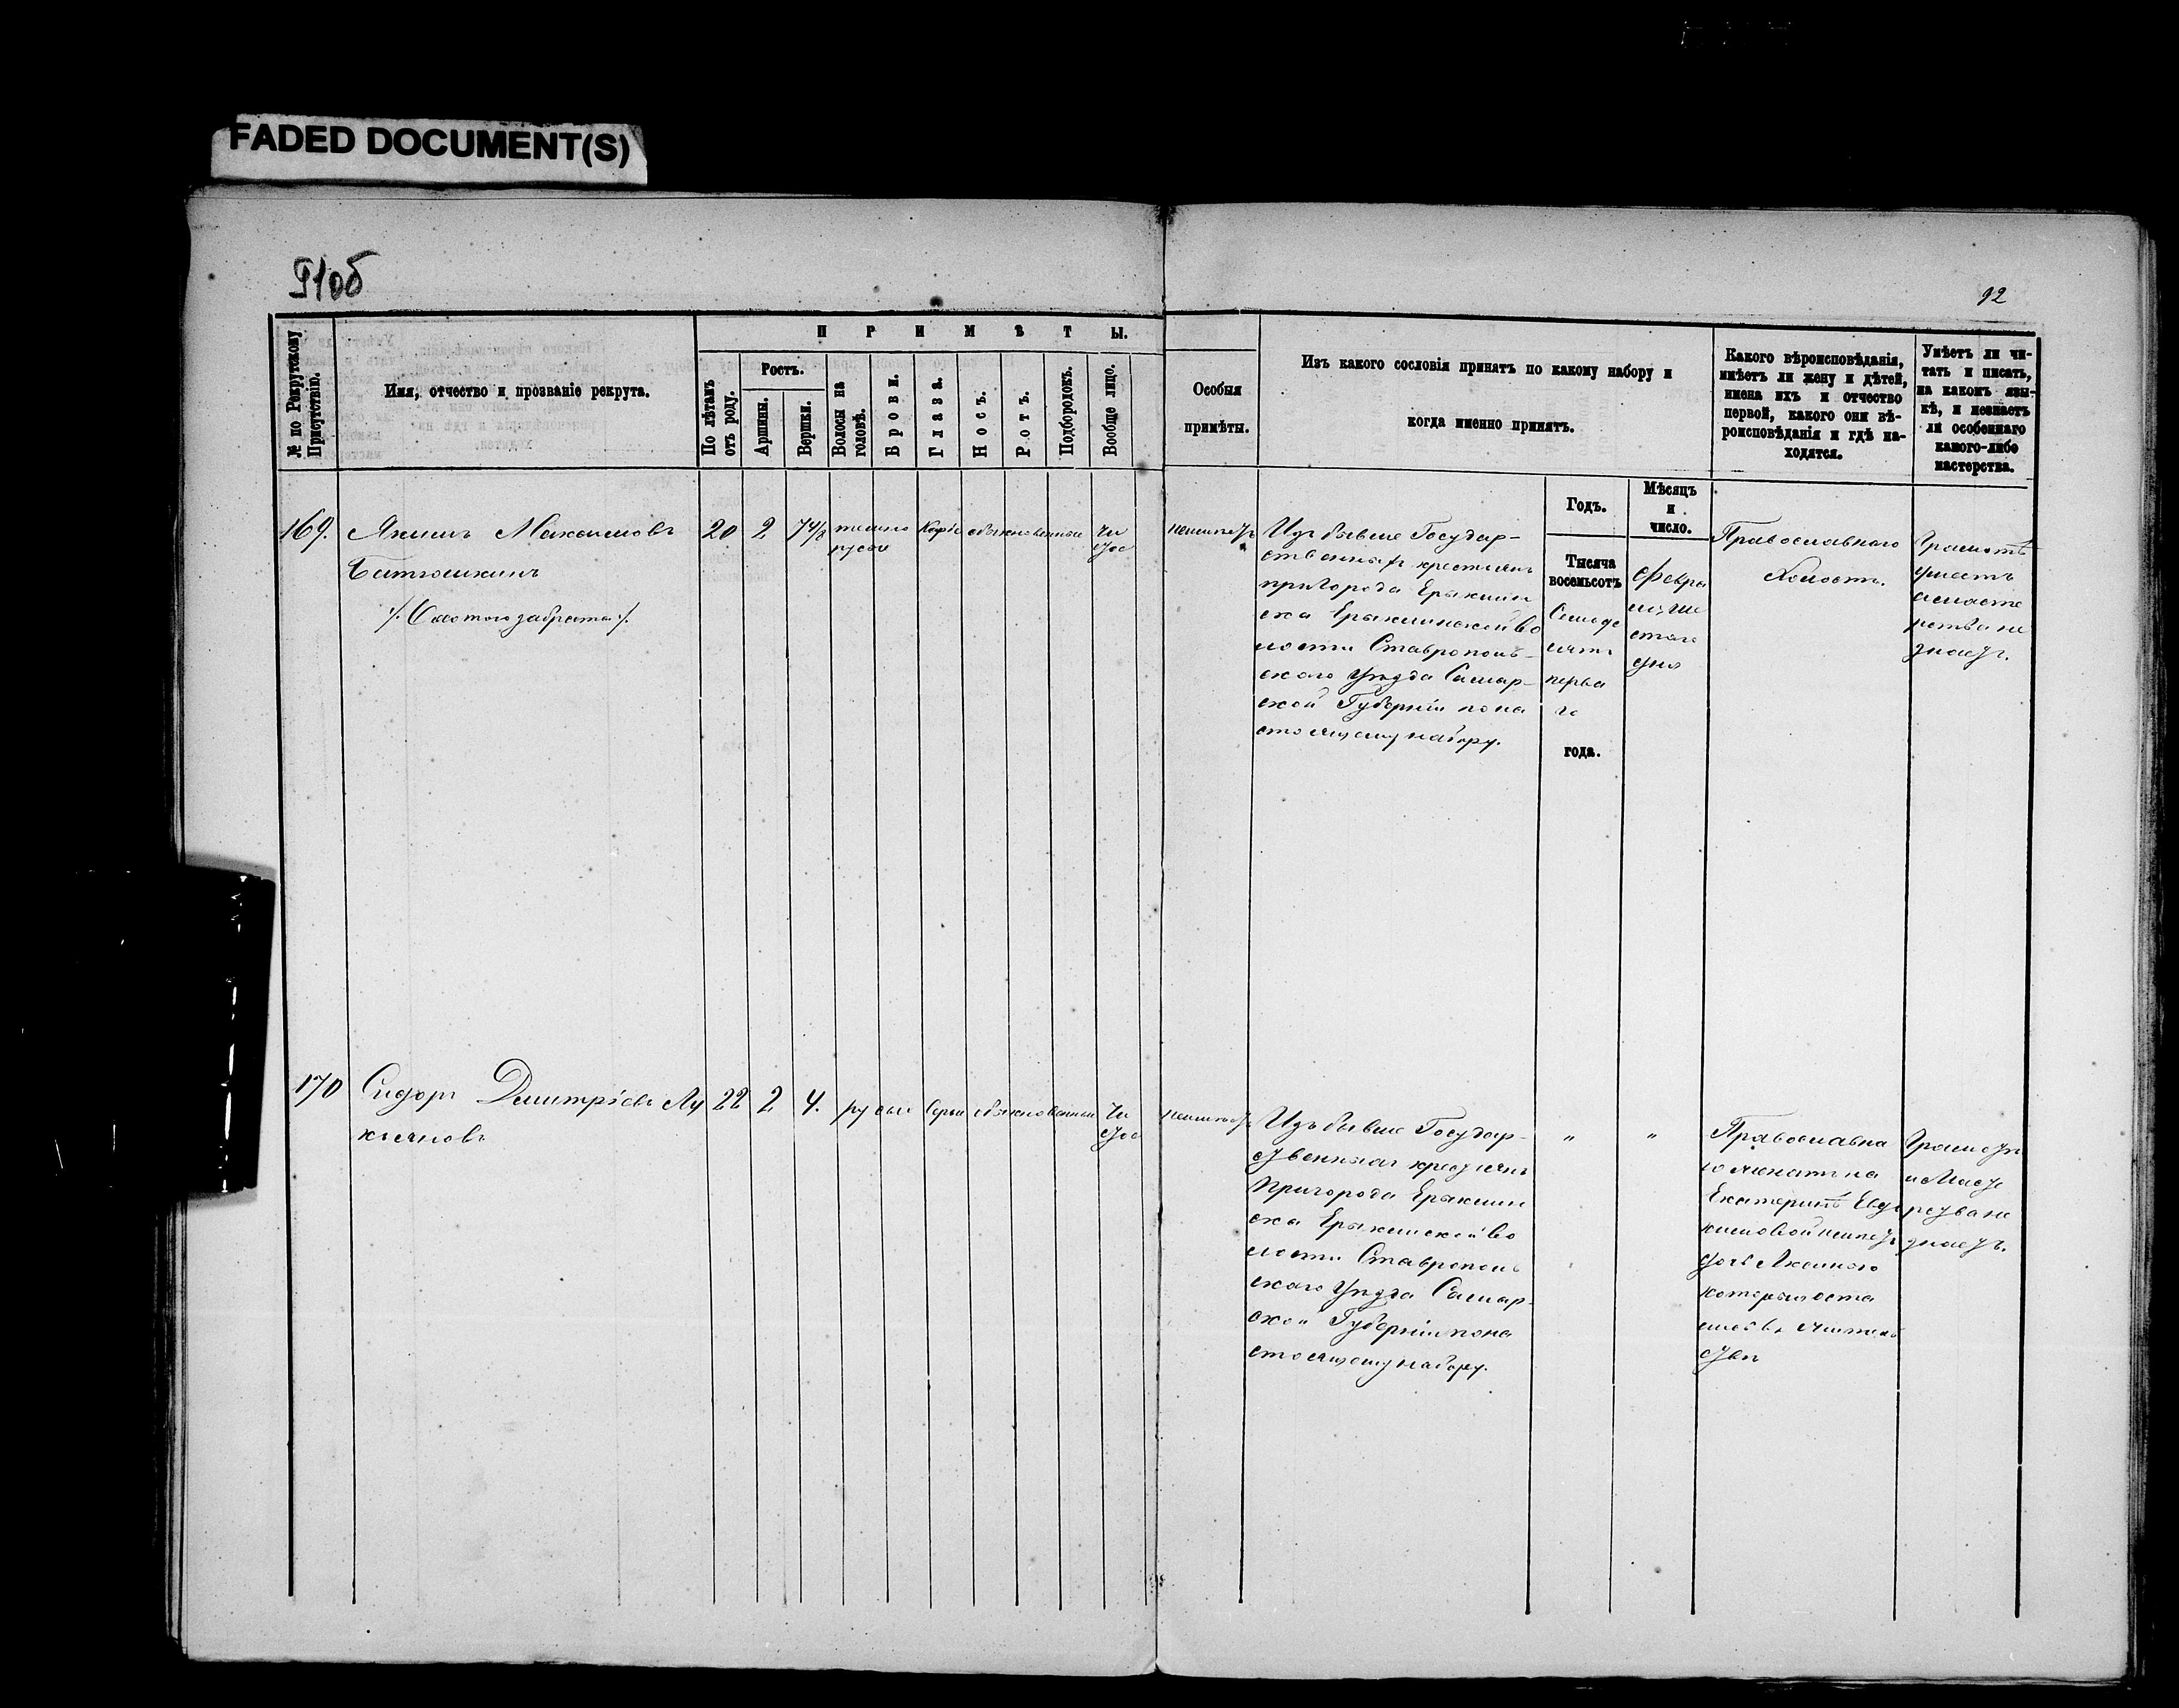 FADED DOCUMENT(S)
91об
92
№ по Рекрутскому Присутствію.
Имя, отчество и прозваніе рекрута.
ПРИМѢТЫ.
По лѣтамъ отъ роду.
Ростъ.
Аршины.
Вершки.
Волосы на головѣ.
Брови.
Глаза.
Носъ.
Ротъ.
Подбородокъ.
Вообще лицо.
Особыя
примѣты.
Изъ какого сословія принятъ по какому набору и
когда именно принятъ.
Какого вѣроисповѣданія,
имѣетъ ли жену и дѣтей,
имена ихъ и отчество
первой, какого они вѣ-
роисповѣданія и гдѣ на-
ходятся.
Умѣетъ ли чи-
тать и писать,
на какомъ язы-
кѣ, и незнаетъ
ли особеннаго
какого-либо
мастерства.
Годъ.
Мѣсяцъ
и
число.
169.
Акимъ Максимовъ
Батюшкинъ
20 2 7 4/8
темно
русыи
Каріе обыкновенныи
Чи
стое
неимѣетъ
Изъ бывше Государ-
ственныхъ крестьянъ
пригорода Ерыклин
ска Ерыклинской во
лости Ставрополь-
скаго Уѣзда Самар-
ской Губерніи по на
стоящему набору.
Тысяча
восемьсотъ
Семьде
сятъ
перва
го
года.
Февра
ля ше
стаго
дня
Православнаго
Холостъ.
Грамотѣ
умѣетъ
а масте
рства не
знаетъ.
170
Сидоръ Дмитріевъ Лу
кьяновъ
22 2 4.
русые Серыи обыкновенныи
Чи
стое
неимѣетъ
Изъ бывше Государ-
ственныхъ крестьянъ
Пригорода Ерыклин
ска Ерыклинской во
лости Ставрополь
скаго Уѣзда Самар-
ской Губерніи по на
стоящему набору.
" "
Православна
го женатъ на
Екатеринѣ Евдо
кимовой имѣетъ
дочь Аксинью
которыя оста
лись в жительс
твѣ
Грамотѣ
и Масте
рства не
знаетъ.